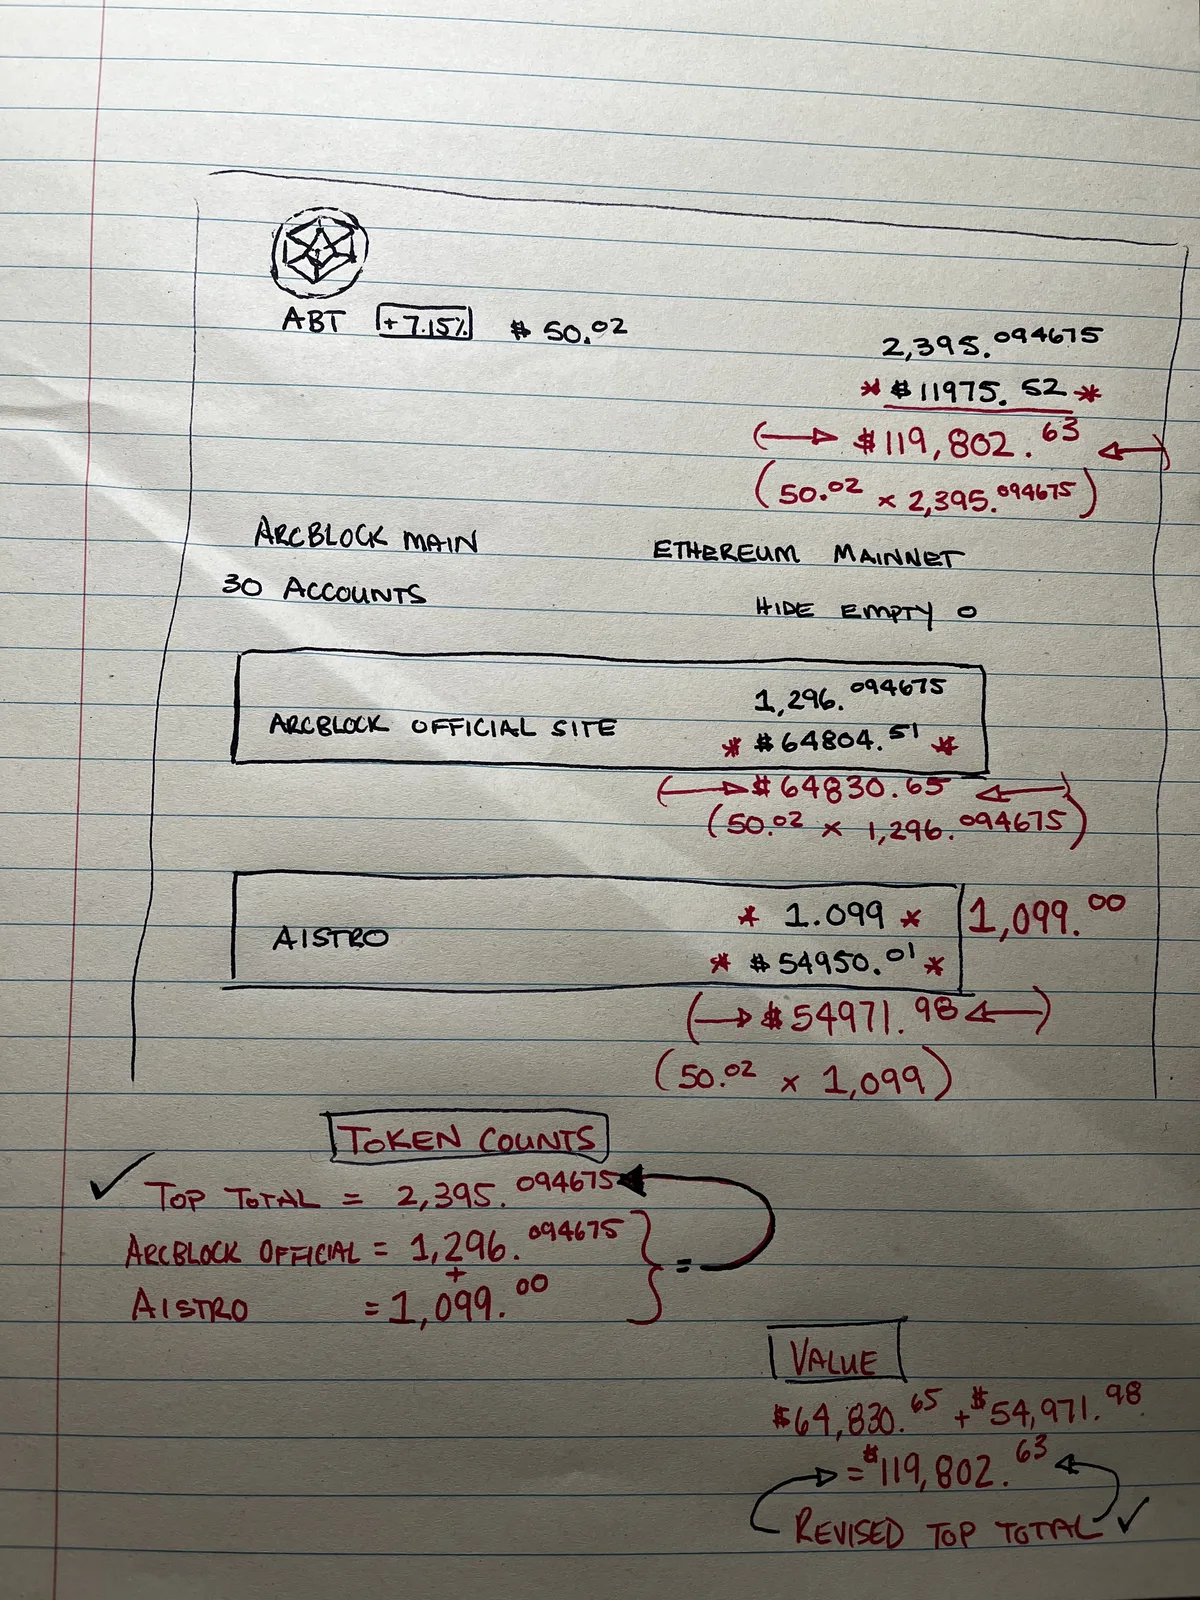 ABT +7.15% $50.02
2,395.094675
* $11975.52 *
$119,802.63
(50.02 x 2,395.094675)
ARCBLOCK MAIN ETHEREUM MAINNET
30 ACCOUNTS HIDE EMPTY O
1,296.094675
ARCBLOCK OFFICIAL SITE * $64804.51 *
$64830.65
(50.02 x 1,296.094675)
* 1.099 * 1,099.00
AISTRO * $54950.01 *
$54971.98
(50.02 x 1,099)
TOKEN COUNTS
✓ TOP TOTAL = 2,395.094675
ARCBLOCK OFFICIAL = 1,296.094675
+
AISTRO = 1,099.00
=
VALUE
$64,830.65 + $54,971.98
= $119,802.63
REVISED TOP TOTAL ✓